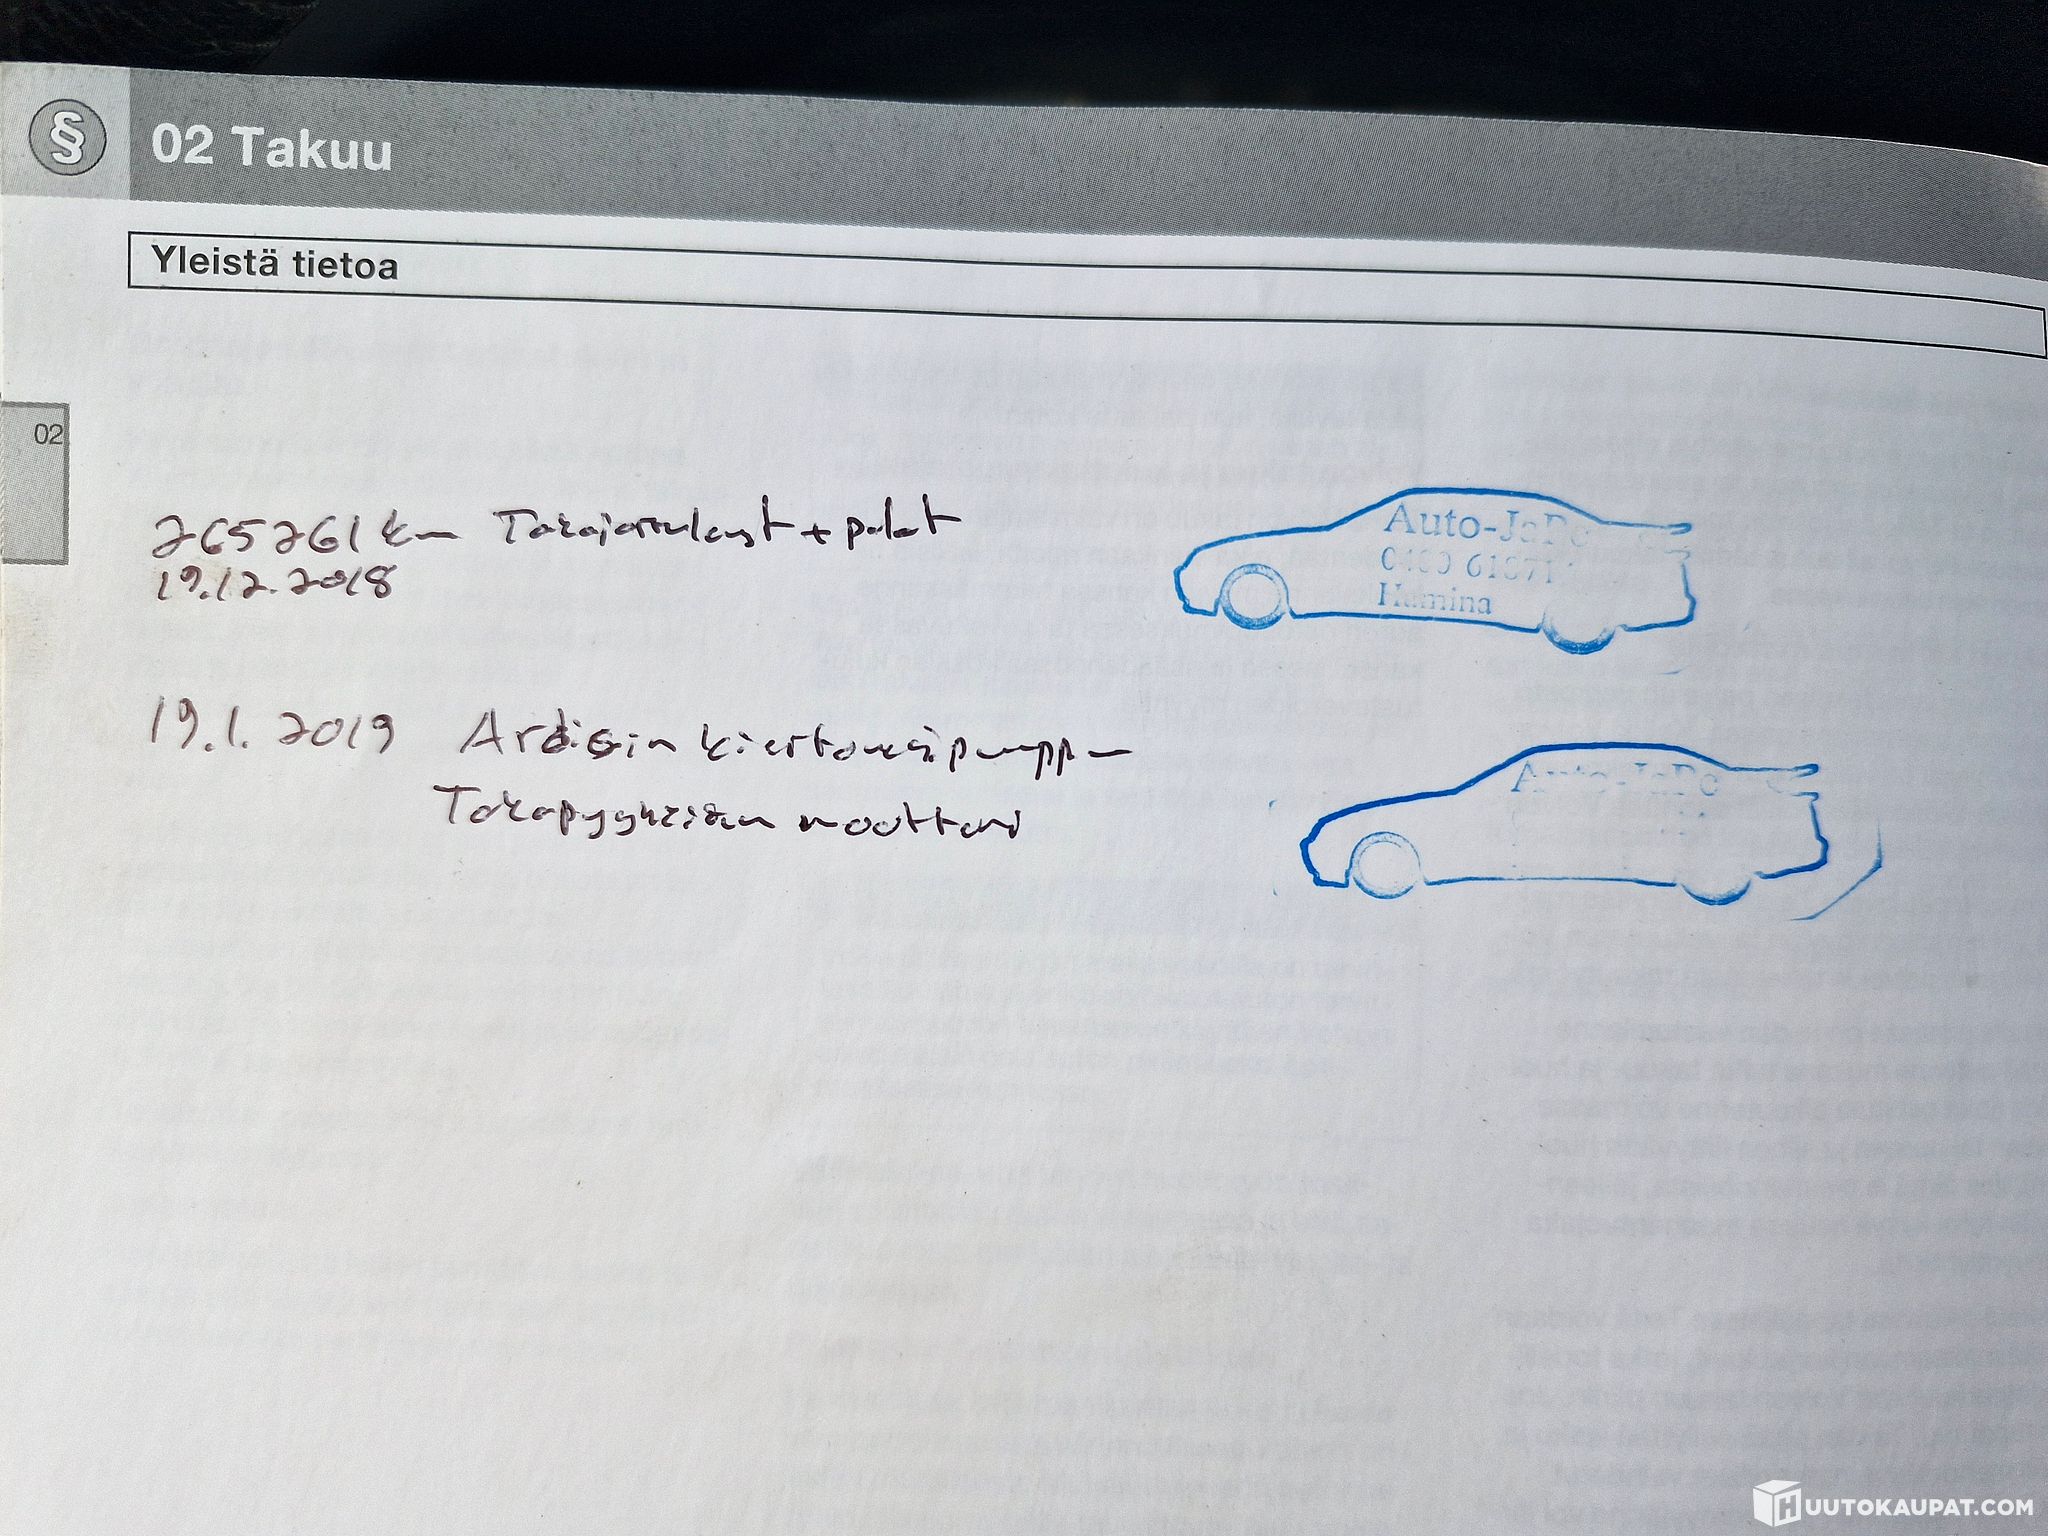 § 02 Takuu
Yleistä tietoa
02
265261 km Takajarrulevyt + palat
19.12.2018
Auto-JaPo
Hamina
19.1.2019 Ardicin kiertovesipumppu
Takapyyhkijän moottori
Auto-JaPo
HUUTOKAUPAT.COM